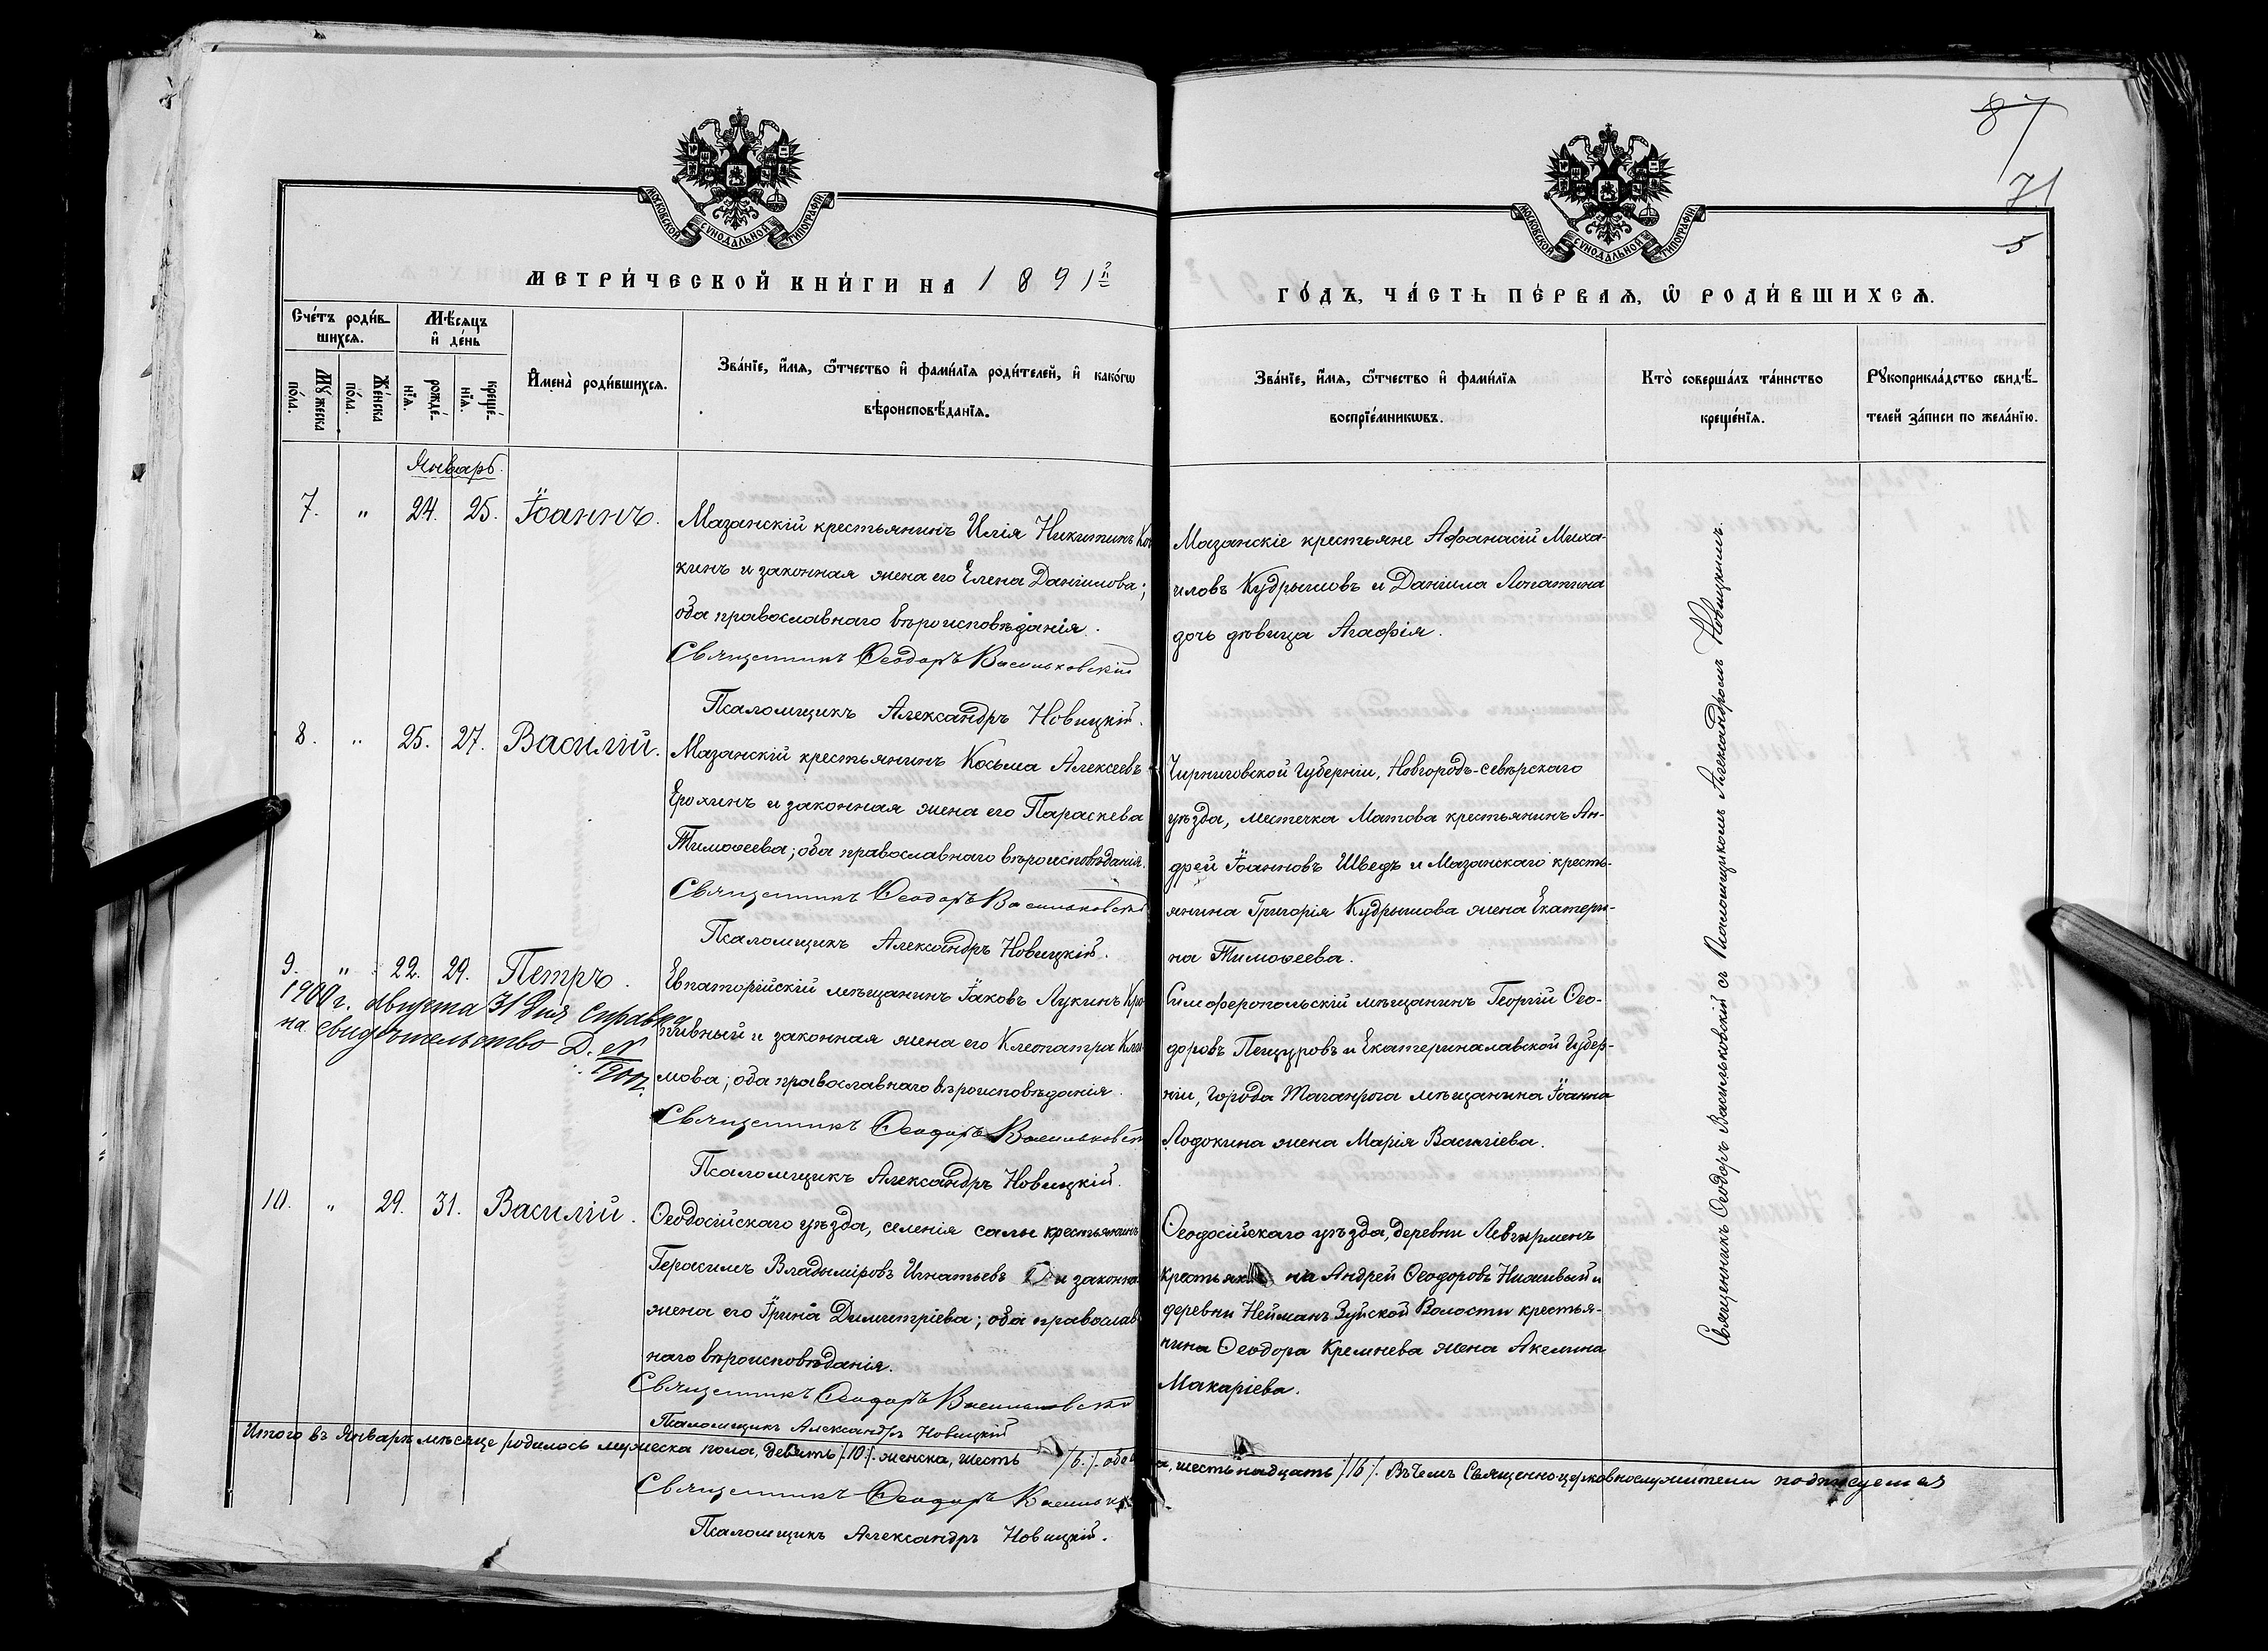 87
71
5
МОСКОВСКОЙ СѴНОДАЛЬНОЙ ТИПОГРАФІИ.
МОСКОВСКОЙ СѴНОДАЛЬНОЙ ТИПОГРАФІИ.
МЕТРИ́ЧЕСКОЙ КНИ́ГИ НА 1891й
ГО́ДЪ, ЧА́СТЬ ПЕ́РВАѦ, Ѡ҆ РОДИ́ВШИХСѦ.
Сче́тъ роди́в-
шихсѧ.
Мѣ́сѧцъ
и҆ де́нь
Мꙋ́жеска
по́ла.
Же́нска
по́ла.
рожде́-
нїѧ.
креще́-
нїѧ.
И҆мена̀ роди́вшихсѧ.
Зва́нїе, и҆́мѧ, ѻ҆́тчество и҆ фами́лїѧ роди́телей, и҆ како́гѡ
вѣроисповѣ́данїѧ.
Зва́нїе, и҆́мѧ, ѻ҆́тчество и҆ фами́лїѧ
воспрїе́мникѡвъ.
Кто̀ соверша́лъ та́инство
креще́нїѧ.
Рꙋкоприкла́дство свидѣ́-
телей за́писи по жела́нїю.
Январь.
7. " 24. 25. Іоаннъ.
Мазанскій крестьянинъ Илія Никитинъ
кинъ и законная жена его Елена Даніилова;
оба православнаго вѣроисповѣданія.
Священникъ Ѳеодоръ Васильковскій
Псаломщикъ Александръ Новицкій.
Мазанскіе крестьяне Афанасій Миха-
иловъ Кудрышовъ и Даніила Лопатина
дочь дѣвица Агафія.
8. " 25. 27. Василій.
Мазанскій крестьянинъ Косьма Алексеевъ
Ерохинъ и законная жена его Параскева
Тимоѳеева; оба православнаго вѣроисповѣданія.
Священникъ Ѳеодоръ Васильковскі
Псаломщикъ Александръ Новицкій.
Чирниговской Губерніи, Новгородъ-сѣвѣрскаго
уѣзда, местечка Матова крестьянинъ Ан-
дрей Іоанновъ Шведъ и Мазанскаго кресть-
янина Григорія Кудрышова жена Екатери-
на Тимоѳеева.
9. " 22. 29. Петръ.
1900г. Августа 31 дня справка
на свидѣтельство Д. №
1900г.
Евпаторійскій мѣщанинъ Іаковъ Лукинъ Кро
пивный и законная жена его Клеопатра Кли-
мова; оба православнаго вѣроисповѣданія.
Священникъ Ѳеодоръ Васильковск
Псаломщикъ Александръ Новицкій.
Симферопольскій мѣщанинъ Георгій Ѳео-
доровъ Пещуровъ и Екатериналавской Губер-
ніи, города Таганрога мѣщанина Іоанна
Лодокина жена Марія Василіева.
10. " 29. 31. Василій.
Ѳеодосійскаго уѣзда, селенія Салы крестьянинъ
Герасимъ Владыміровъ Игнатьевъ и законна
жена его Ірина Димитріева; оба православ
наго вѣроисповѣданія.
Священникъ Ѳеодоръ Васильковскі
Псаломщикъ Александръ Новицкій
Ѳеодосійскаго уѣзда, деревни
Андрей Ѳеодоровъ и
деревни Нейманъ Зуйской Волости крестья-
нина Ѳеодора Кремнева жена Акелина
Макаріева.
Священникъ Ѳеодоръ Васильковскій съ Псаломщикомъ Александромъ Новицкимъ.
Итого въ Январѣ мѣсяцѣ родилось мужеска пола, девять /.10./. женска, шесть /6./. обоего
а, шестьнадцать /.16./. Въ чемъ Священно-церковнослужители подписуемся
Священникъ Ѳеодоръ Васильк
Псаломщикъ Александръ Новицкій.